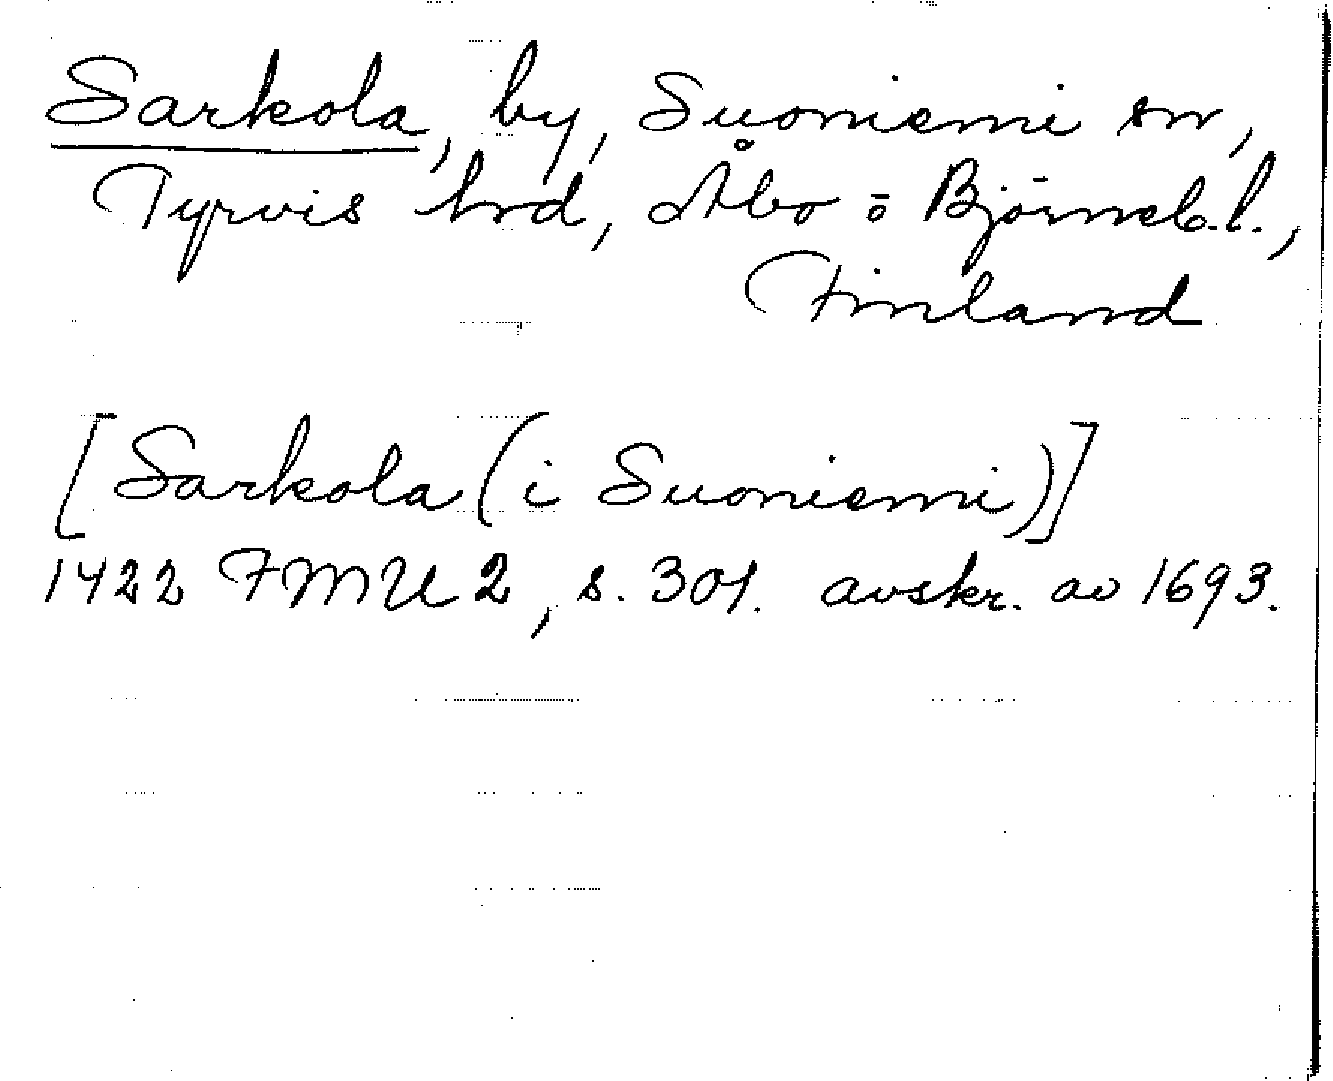 Sarkola, by, Suoniemi sn,
Tyrvis hrd, Åbo o Björneb. l.,
Finland
[Sarkola (i Suoniemi)]
1422 FMU 2, s. 301. avskr. av 1693.